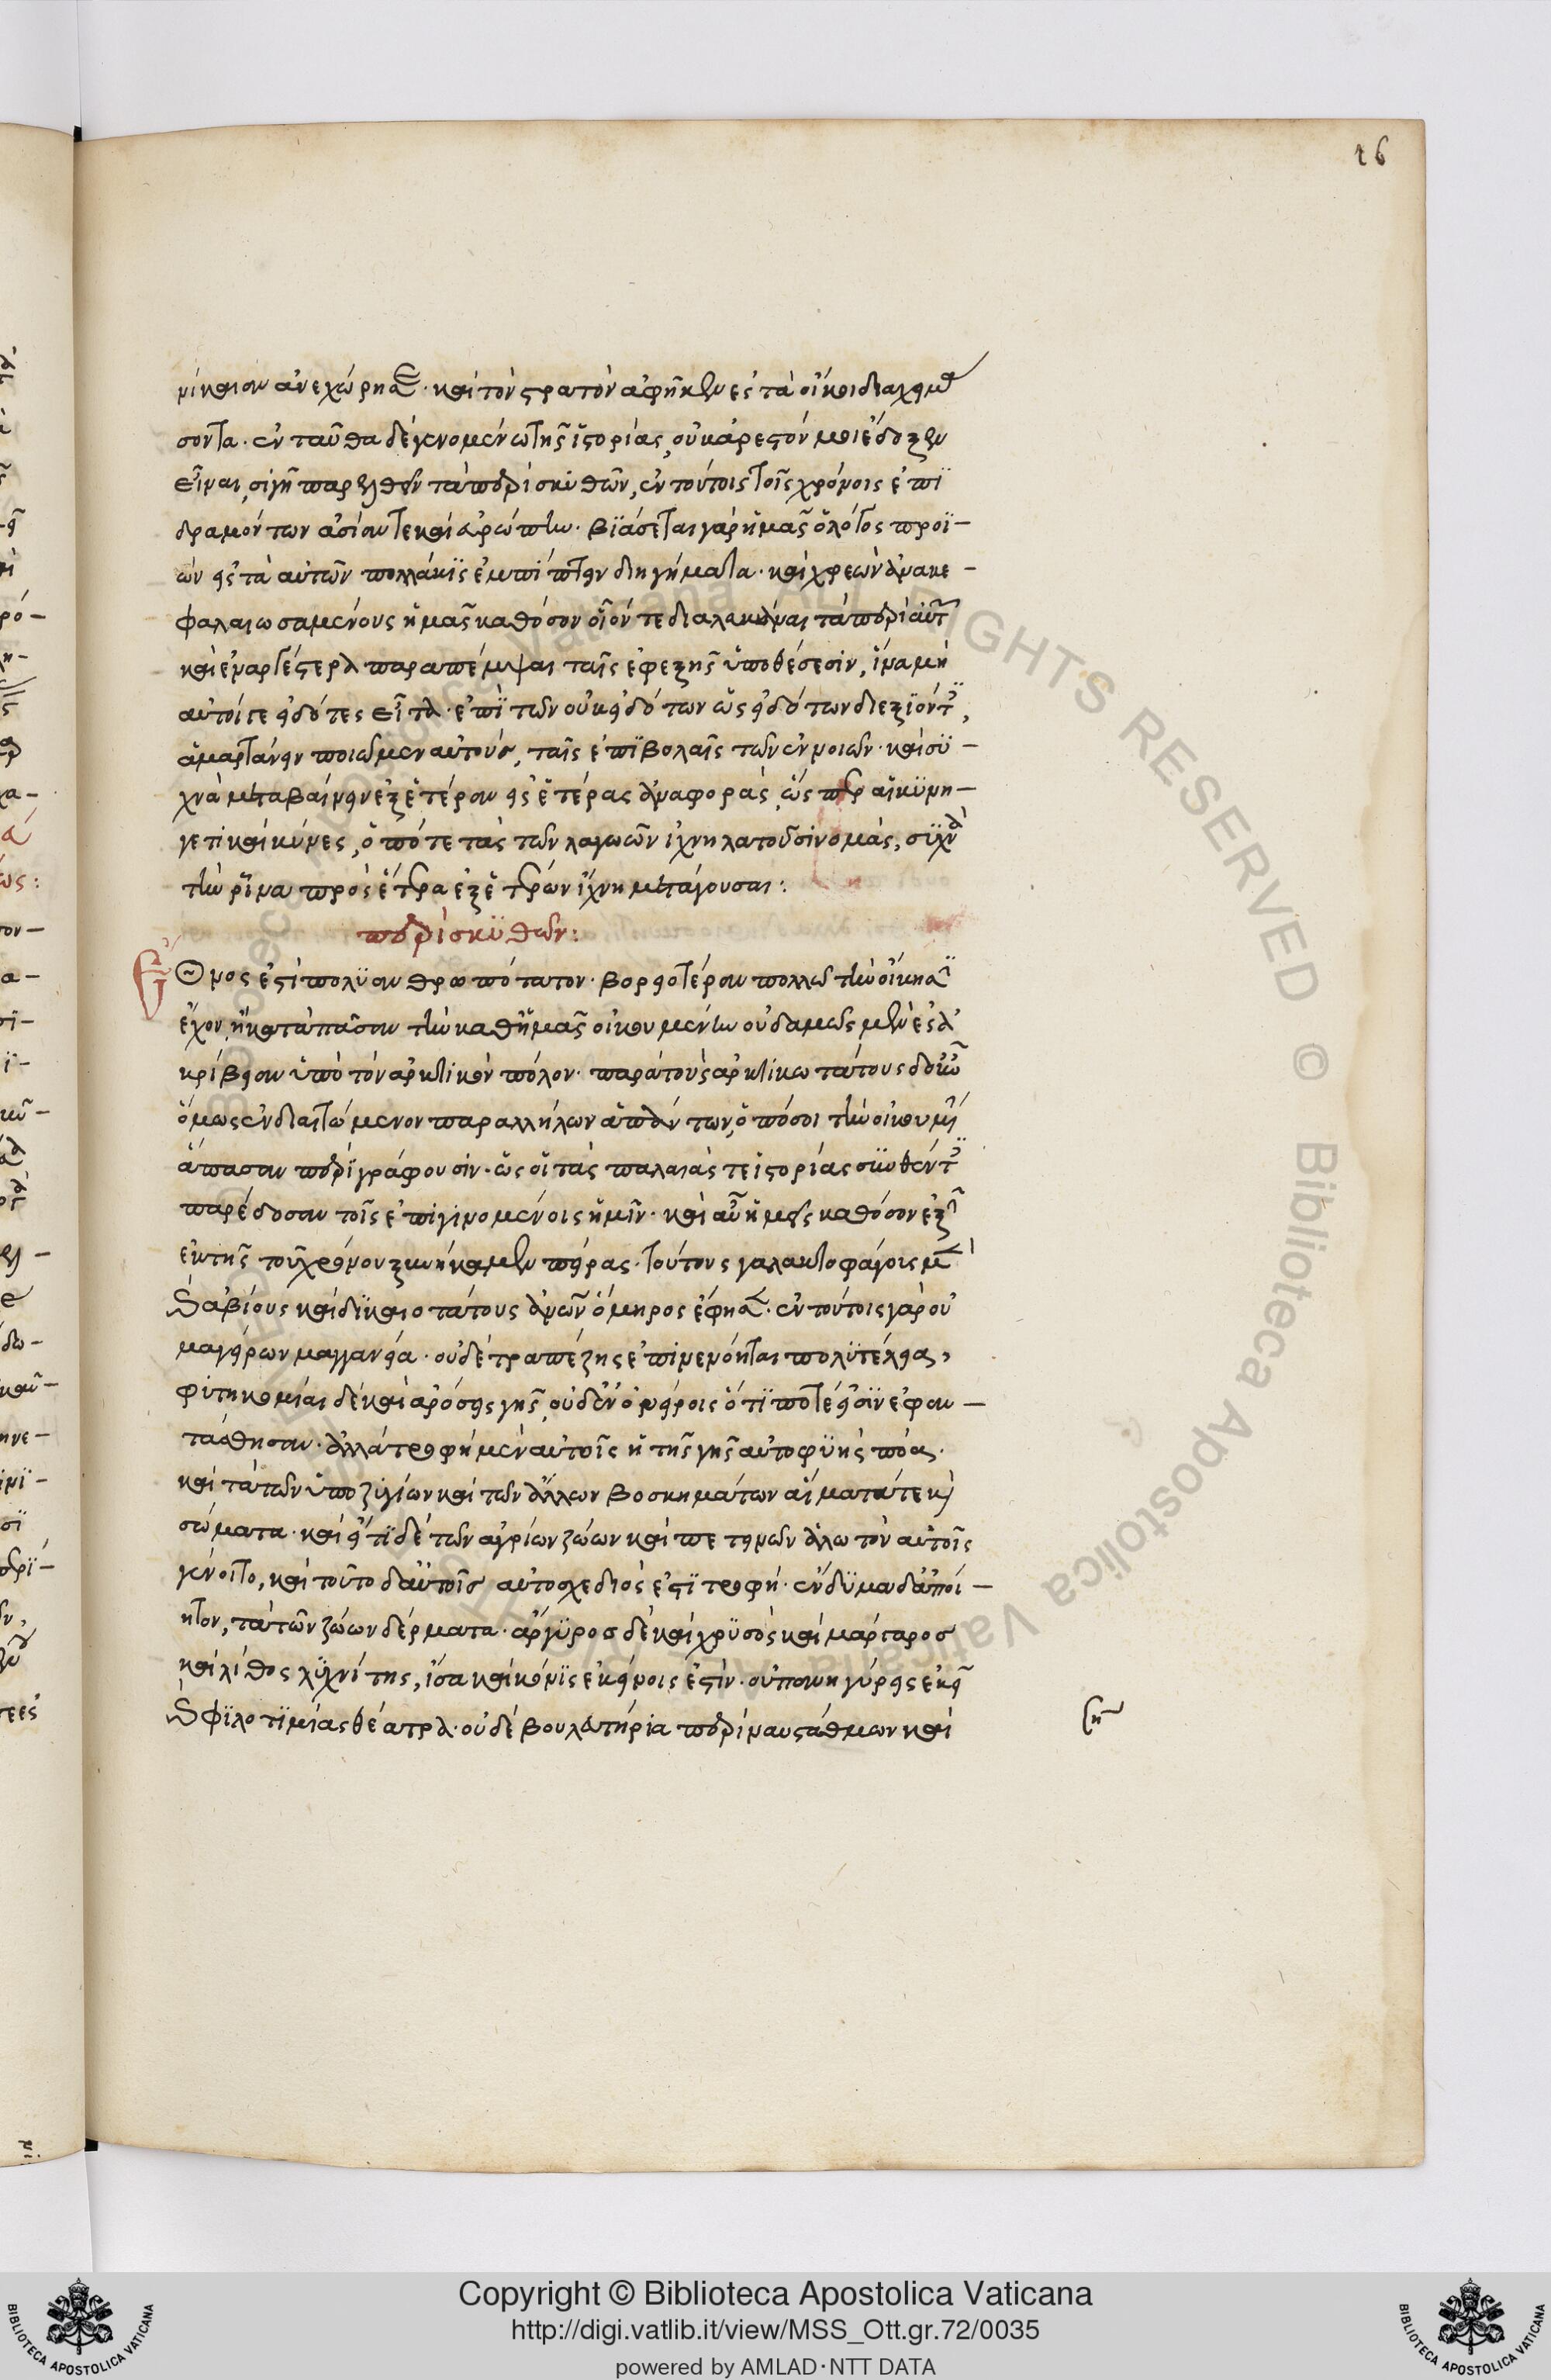 16
νίκαιαν ἀνεχώρησε· καὶ τὸν στρατὸν ἀφῆκεν ἐς τὰ οἴκοι διαχειμά
σοντα· ἐνταῦθα δὲ γενομένω τῆς ἱστορίας, οὐκ ἀρεστόν μοι ἔδοξεν
εἶναι, σιγῆ παρελθεῖν τὰ περὶ σκυθῶν, ἐν τούτοις τοῖς χρόνοις ἐπι
δραμόντων ἀσίαν τε καὶ εὐρώπην· βιάσεται γὰρ ἡμᾶς ὁ λόγος προϊ-
ὼν εἰς τὰ αὐτῶν πολλάκις ἐμπίπτειν διηγήματα· καὶ χρεὼν ἀνακε-
φαλαιωσαμένους ἡμᾶς καθόσον οἷόν τε διαλευκᾶναι τὰ περὶ αὐτῶν
καὶ ἐναργέστερα παραπέμψαι ταῖς ἐφεξῆς ὑποθέσεσιν, ἵνα μὴ
αὐτοί τε εἰδότες εἶτα· ἐπὶ τῶν οὐκ εἰδότων ὡς εἰδότων διεξιόντες,
ἁμαρτάνειν ποιῶμεν αὐτούς, ταῖς ἐπιβολαῖς τῶν ἐννοιῶν· καὶ συ-
χνὰ μεταβαίνειν ἐξ ἑτέρων εἰς ἑτέρας ἀναφορὰς, ὥσπερ αἱ κυνη-
γετικαὶ κύνες, ὁπότε τὰς τῶν λαγωῶν ἰχνηλατοῦσι νομάς, συχνὰ
τὴν ῥῖνα πρὸς ἕτερα ἐξ ἑτέρων ἴχνη μετάγουσαι:
περὶ σκυθῶν:
Ἔθνος ἐστὶ πολυανθρωπότατον· βορειοτέραν πολλῶ τὴν οἴκησιν
ἔχον, ἢ κατὰ πᾶσαν τὴν καθ' ἡμᾶς οἰκουμένην οὐδαμῶς μὲν ἐς ἀ
κρίβειαν ὑπὸ τὸν ἀρκτικὸν πόλον· παρὰ τοὺς ἀρκτικωτάτους δ' οὖν
ὅμως ἐνδιαιτώμενον παραλλήλων ἁπάντων, ὁπόσοι τὴν οἰκουμένην
ἅπασαν περιγράφουσιν· ὡς οἱ τὰς παλαιὰς τε ἱστορίας συνθέντες
παρέδοσαν τοῖς ἐπιγινομένοις ἡμῖν· καὶ αὖ ἡμεῖς καθόσον ἐξῆν
ἐκ τῆς τοῦ χρόνου ξυνήκαμεν πείρας· τούτους γαλακτοφάγους μὲν
καὶ ἀβίους καὶ δικαιοτάτους ἀνδρῶν ὅμηρος ἔφησε· ἐν τούτοις γὰρ οὐ
μαγείρων μαγγανεία· οὐδὲ τραπέζης ἐπινενόηται πολυτέλεια,
φυτηκομίαι δὲ καὶ ἀρόσεις γῆς, οὐδ' ἐν ὀνείροις ὅ τί ποτέ εἰσιν ἐφαν-
τάσθησαν· ἀλλὰ τροφὴ μὲν αὐτοῖς ἡ τῆς γῆς αὐτοφυὴς πόα·
καὶ τὰ τῶν ὑποζυγίων καὶ τῶν ἄλλων βοσκημάτων αἵματά τε καὶ
σώματα· καὶ εἴ τι δὲ τῶν ἀγρίων ζώων καὶ πετεινῶν ἁλωτὸν αὐτοῖς
γένοιτο, καὶ τοῦτο δ' αὐτοῖς αὐτοσχέδιός ἐστι τροφή· ἔνδυμα δ' ἀποί-
ητον, τὰ τῶν ζώων δέρματα· ἄργυρος δὲ καὶ χρυσὸς καὶ μάργαρος
καὶ λίθος λυχνίτης, ἴσα καὶ κόνις ἐκείνοις ἐστίν· οὐ πανηγύρεις ἐκεῖ
καὶ φιλοτιμίας θέατρα· οὐδὲ βουλευτήρια περὶ ναυστάθμων καὶ